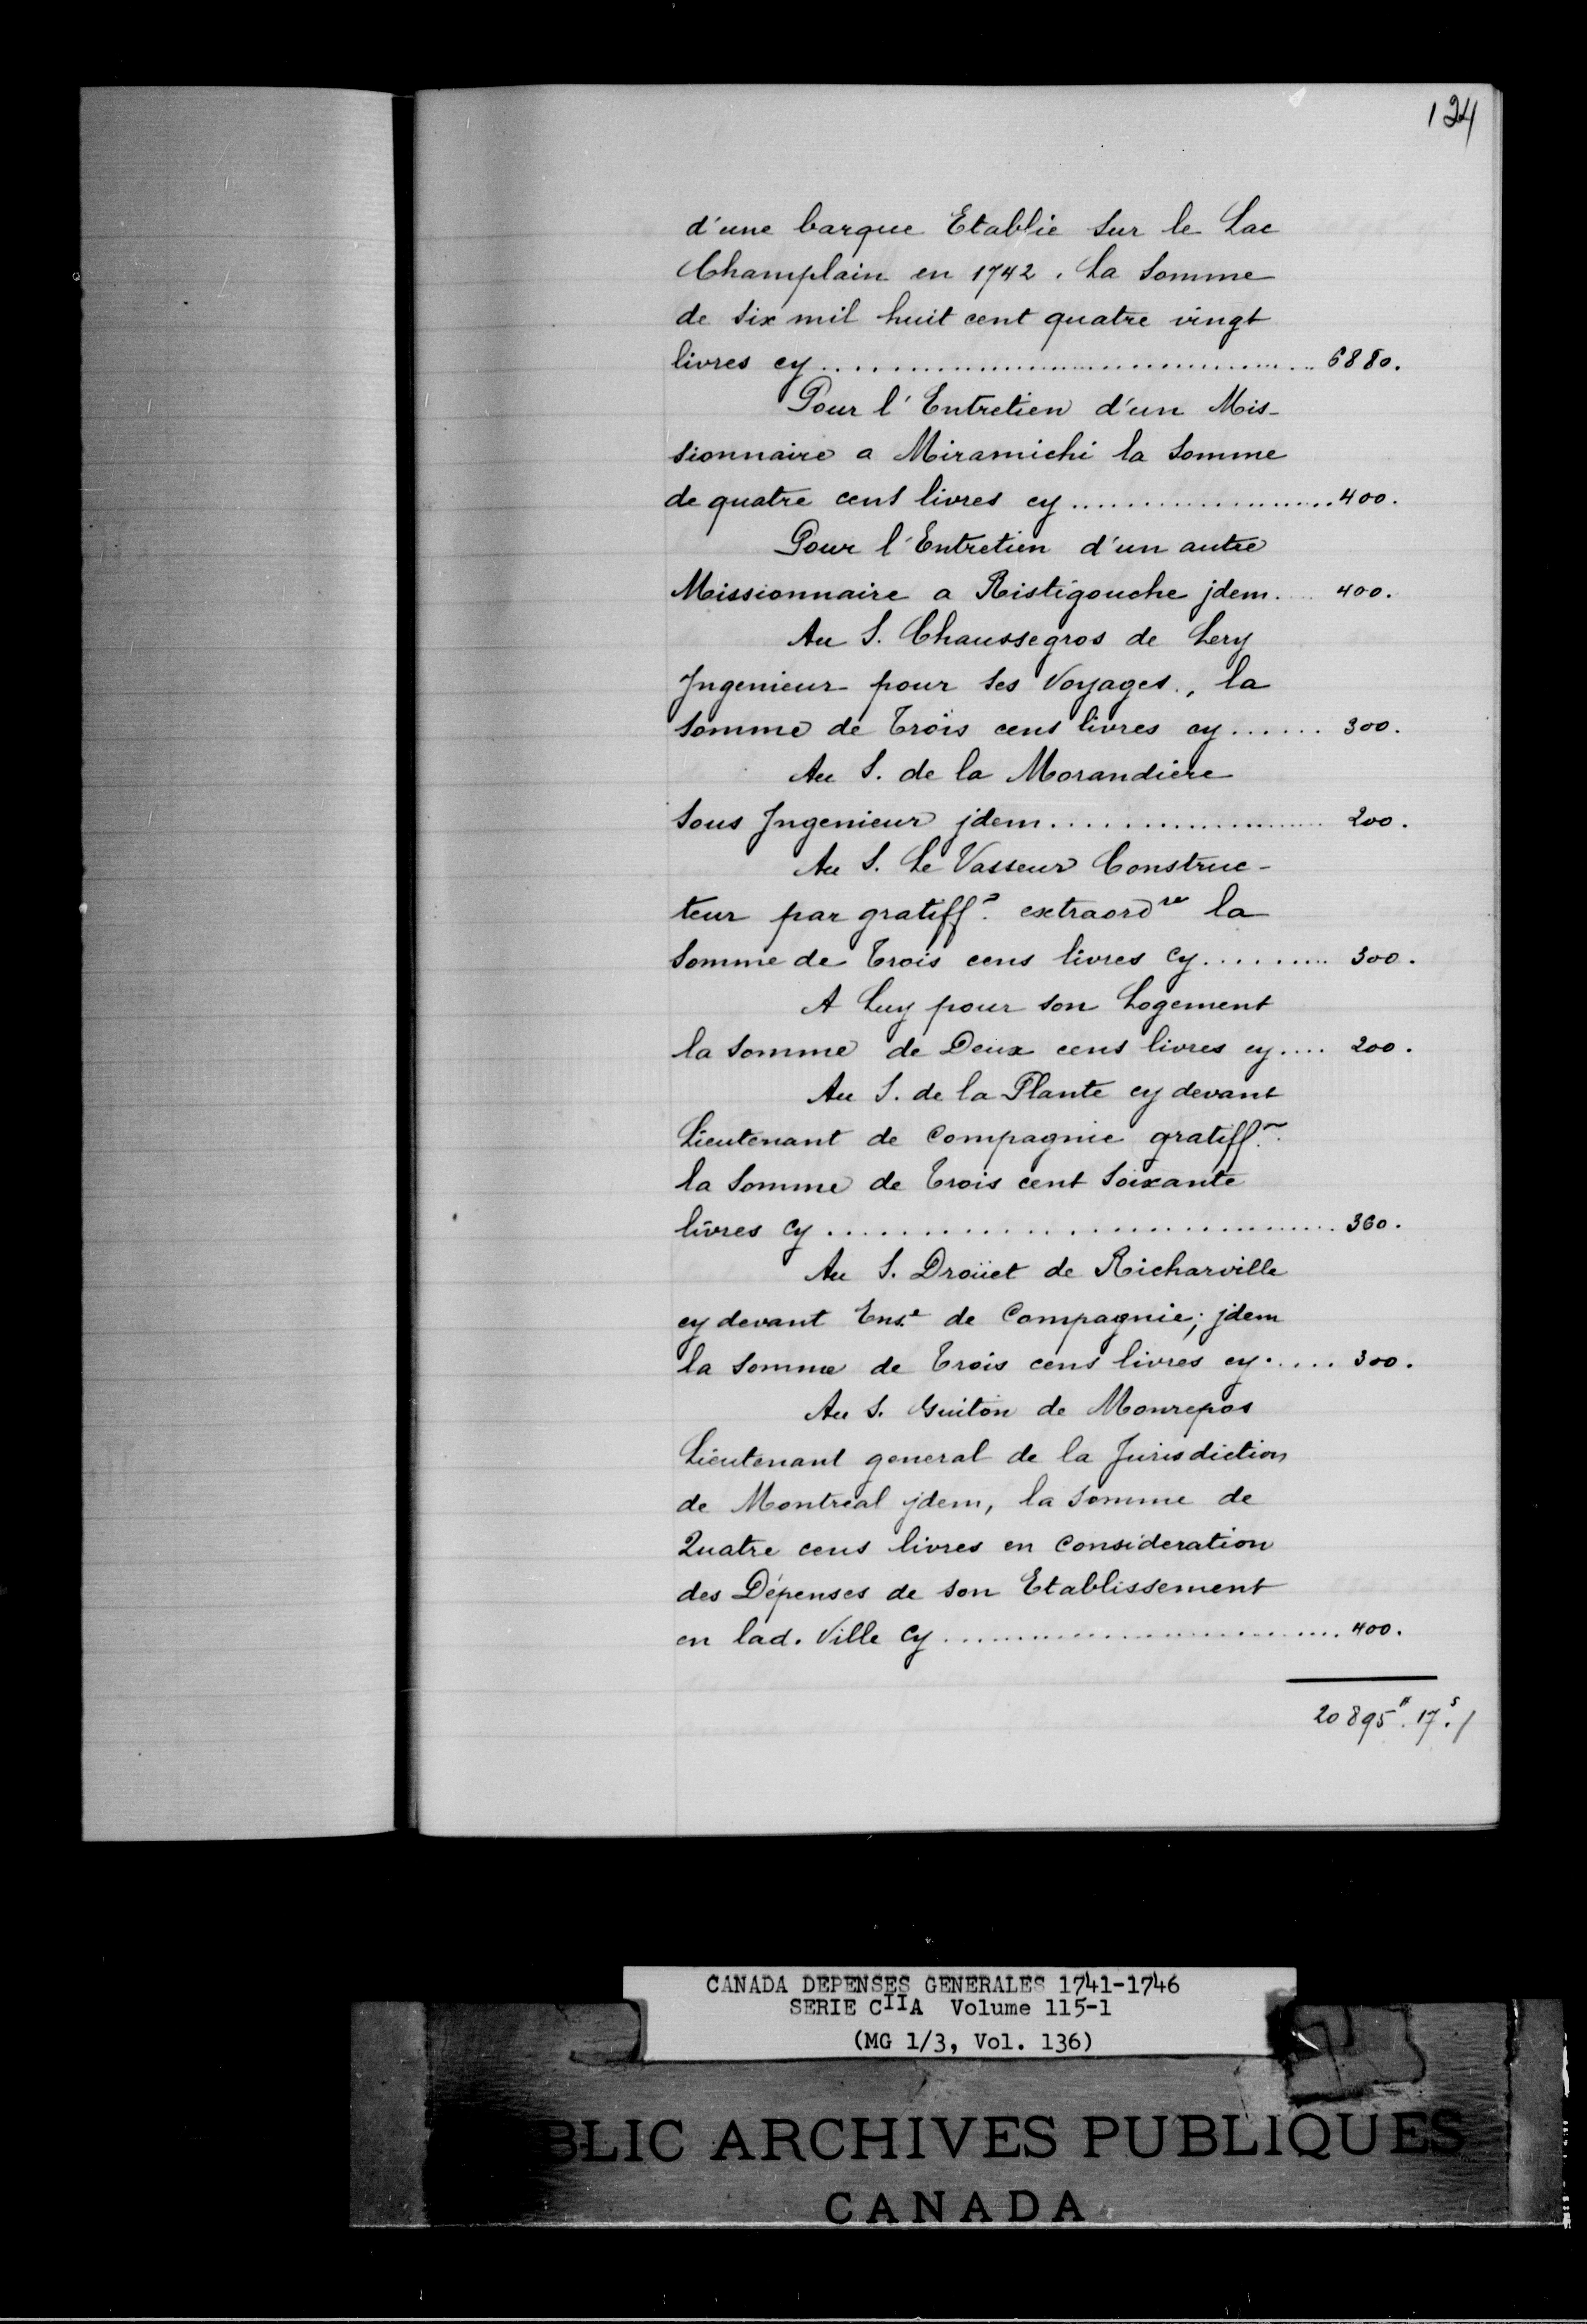 124
d'une barque Etablie sur le Lac
Champlain en 1742. La Somme
de six mil huit cent quatre vingt
livres cy .......... 6880.
Pour l'Entretien d'un Mis-
sionnaire a Miramichi la Somme
de quatre cens livres cy .......... 400.
Pour l'Entretien d'un autre
Missionnaire a Ristigouche jdem .... 400.
Au S. Chaussegros de Lery
Jngenieur pour ses Voyages, la
Somme de Trois cens livres cy ...... 300.
Au S. de la Morandiere
Sous Jngenieur jdem .......... 200.
Au S. Le Vasseur Construc-
teur par gratiff.on extraord.re la
Somme de Trois cens livres cy ......... 300.
A Luy pour son Logement
la Somme de Deux cens livres cy .... 200.
Au S. de la Plante cy devant
Lieutenant de Compagnie gratiff.on
la Somme de Trois cent Soixante
livres cy .......... 360.
Au S. Droüet de Richarville
cy devant Ens.e de Compagnie; jdem
la Somme de Trois cens livres cy ..... 300.
Au S. Guiton de Monrepos
Lieutenant general de la Jurisdiction
de Montreal jdem, la somme de
Quatre cens livres en Consideration
des Dépenses de son Etablissement
en lad. Ville cy .......... 400.
20895". 17s./
CANADA DEPENSES GENERALES 1741-1746
SERIE CIIA Volume 115-1
(MG 1/3, Vol. 136)
BLIC ARCHIVES PUBLIQUES
CANADA